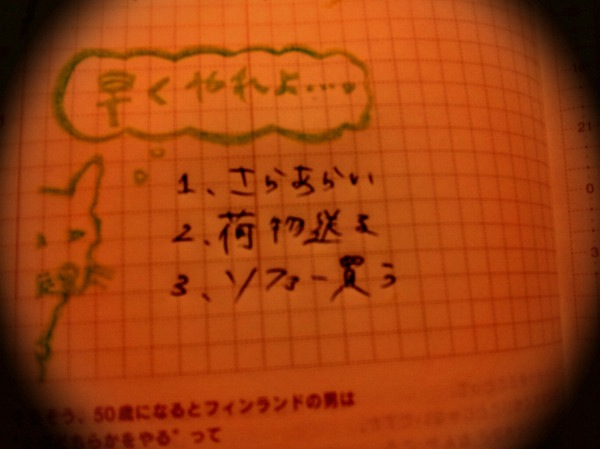 早くやれよ・・・。
1、さらあらい
2、荷物送る
3、ソファー買う
そう、50歳になるとフィンランドの男は
らかをやる"って
21
0
3